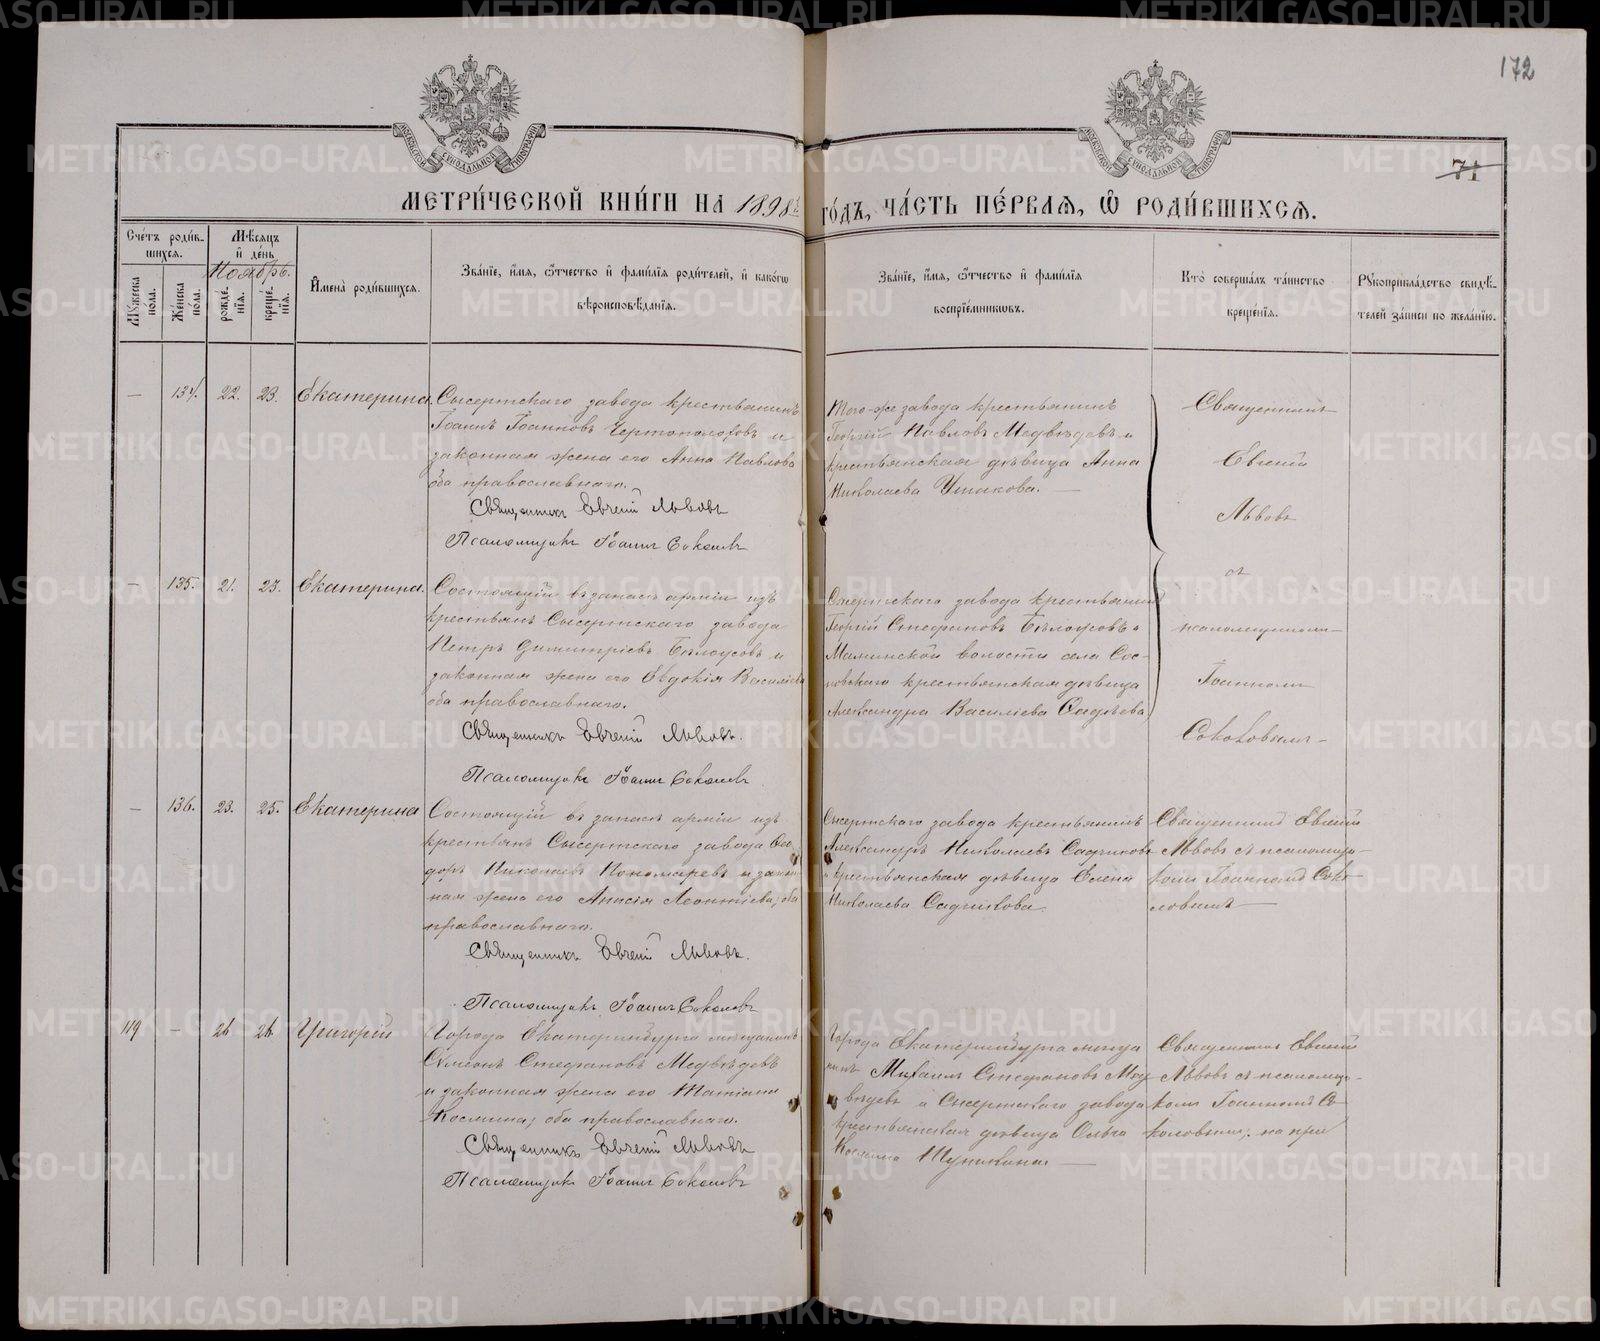 172
71
МЕТРИ́ЧЕСКОЙ КНИ́ГИ НА 1898й
ГО́ДЪ, ЧА́СТЬ ПЕ́РВАѦ, Ѡ҆ РОДИ́ВШИХСѦ.
Сче́тъ роди́в-
шихсѧ.
Мꙋ́жеска по́ла.
Же́нска по́ла.
Мѣ́сѧцъ
и҆ де́нь
Ноябрь.
рожде́нїѧ.
креще́нїѧ.
И҆мена̀ роди́вшихсѧ.
Зва́нїе, и҆́мѧ, ѻ҆́тчество и҆ фами́лїѧ роди́телей, и҆ како́гѡ
вѣроисповѣ́данїѧ.
Зва́нїе, и҆́мѧ, ѻ҆́тчество и҆ фами́лїѧ
воспрїе́мникѡвъ.
Кто̀ соверша́лъ та́инство
креще́нїѧ.
Рꙋкоприкла́дство свидѣ́-
телей за́писи по жела́нїю.
— 134. 22. 23. Екатерина.
Сысертскаго завода крестьянинъ
Іоаннъ Іоанновъ Чертополоховъ и
законная жена его Анна Павлова
оба православнаго.
Священникъ Евгеній Львовъ
Псаломщикъ Іоаннъ Соколовъ
Того-же завода крестьянинъ
Георгій Павловъ Медвѣдевъ и
крестьянская дѣвица Анна
Николаева Ушакова. —
Священникъ
Евгеній
Львовъ
съ
псаломщикомъ
Іоанномъ
Соколовымъ —
— 135. 21. 23. Екатерина.
Состоящій въ запасѣ арміи изъ
крестьянъ Сысертскаго завода
Петръ Димитріевъ Бѣлоусовъ и
законная жена его Евдокія Василіева
оба православнаго.
Священникъ Евгеній Львовъ.
Псаломщикъ Іоаннъ Соколовъ
Сысертскаго завода крестьянинъ
Георгій Стефановъ Бѣлоусовъ и
Маминской волости села Сос-
новскаго крестьянская дѣвица
Александра Василіева
— 136. 23. 25. Екатерина
Состоящій въ запасѣ арміи изъ
крестьянъ Сысертскаго завода Ѳео
доръ Николаевъ Пономаревъ и закон
ная жена его Анисія Леонтіева, оба
православнаго.
Священникъ Евгеній Львовъ.
Псаломщикъ Іоаннъ Соколовъ
Сысертскаго завода крестьянинъ
Александръ Николаевъ Садчиковъ
и крестьянская дѣвица Елена
Николаева Садчикова.
Священникъ Евгеній
Львовъ съ псаломщи-
комъ Іоанномъ Соко-
ловымъ —
119 — 26. 26. Григорій
Города Екатеринбурга мѣщанинъ
Симеонъ Стефановъ Медвѣдевъ
и законная жена его Татіана
Космина, оба православнаго.
Священникъ Евгеній Львовъ
Псаломщикъ Іоаннъ Соколовъ
Города Екатеринбурга мѣща
нинъ Михаилъ Стефановъ Мед
вѣдевъ и Сысертскаго завода
крестьянская дѣвица Ольга
Космина —
Священникъ Евгеній
Львовъ съ псаломщи-
комъ Іоанномъ Со-
коловымъ.
METRIKI.GASO-URAL.RU